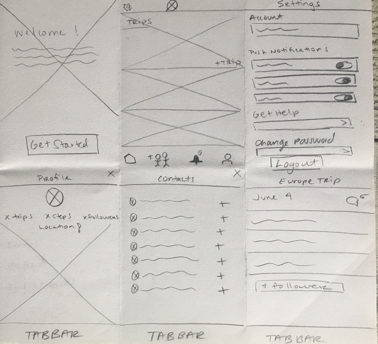 Welcome!
Get Started
Trips
+Trip
Settings
Account
Push Notifications
Get Help
Change Password
Logout
Profile
X
X trips
X followers
Location
TABBAR
Contacts
X
TABBAR
Europe Trip
June 9
+ followers
TABBAR